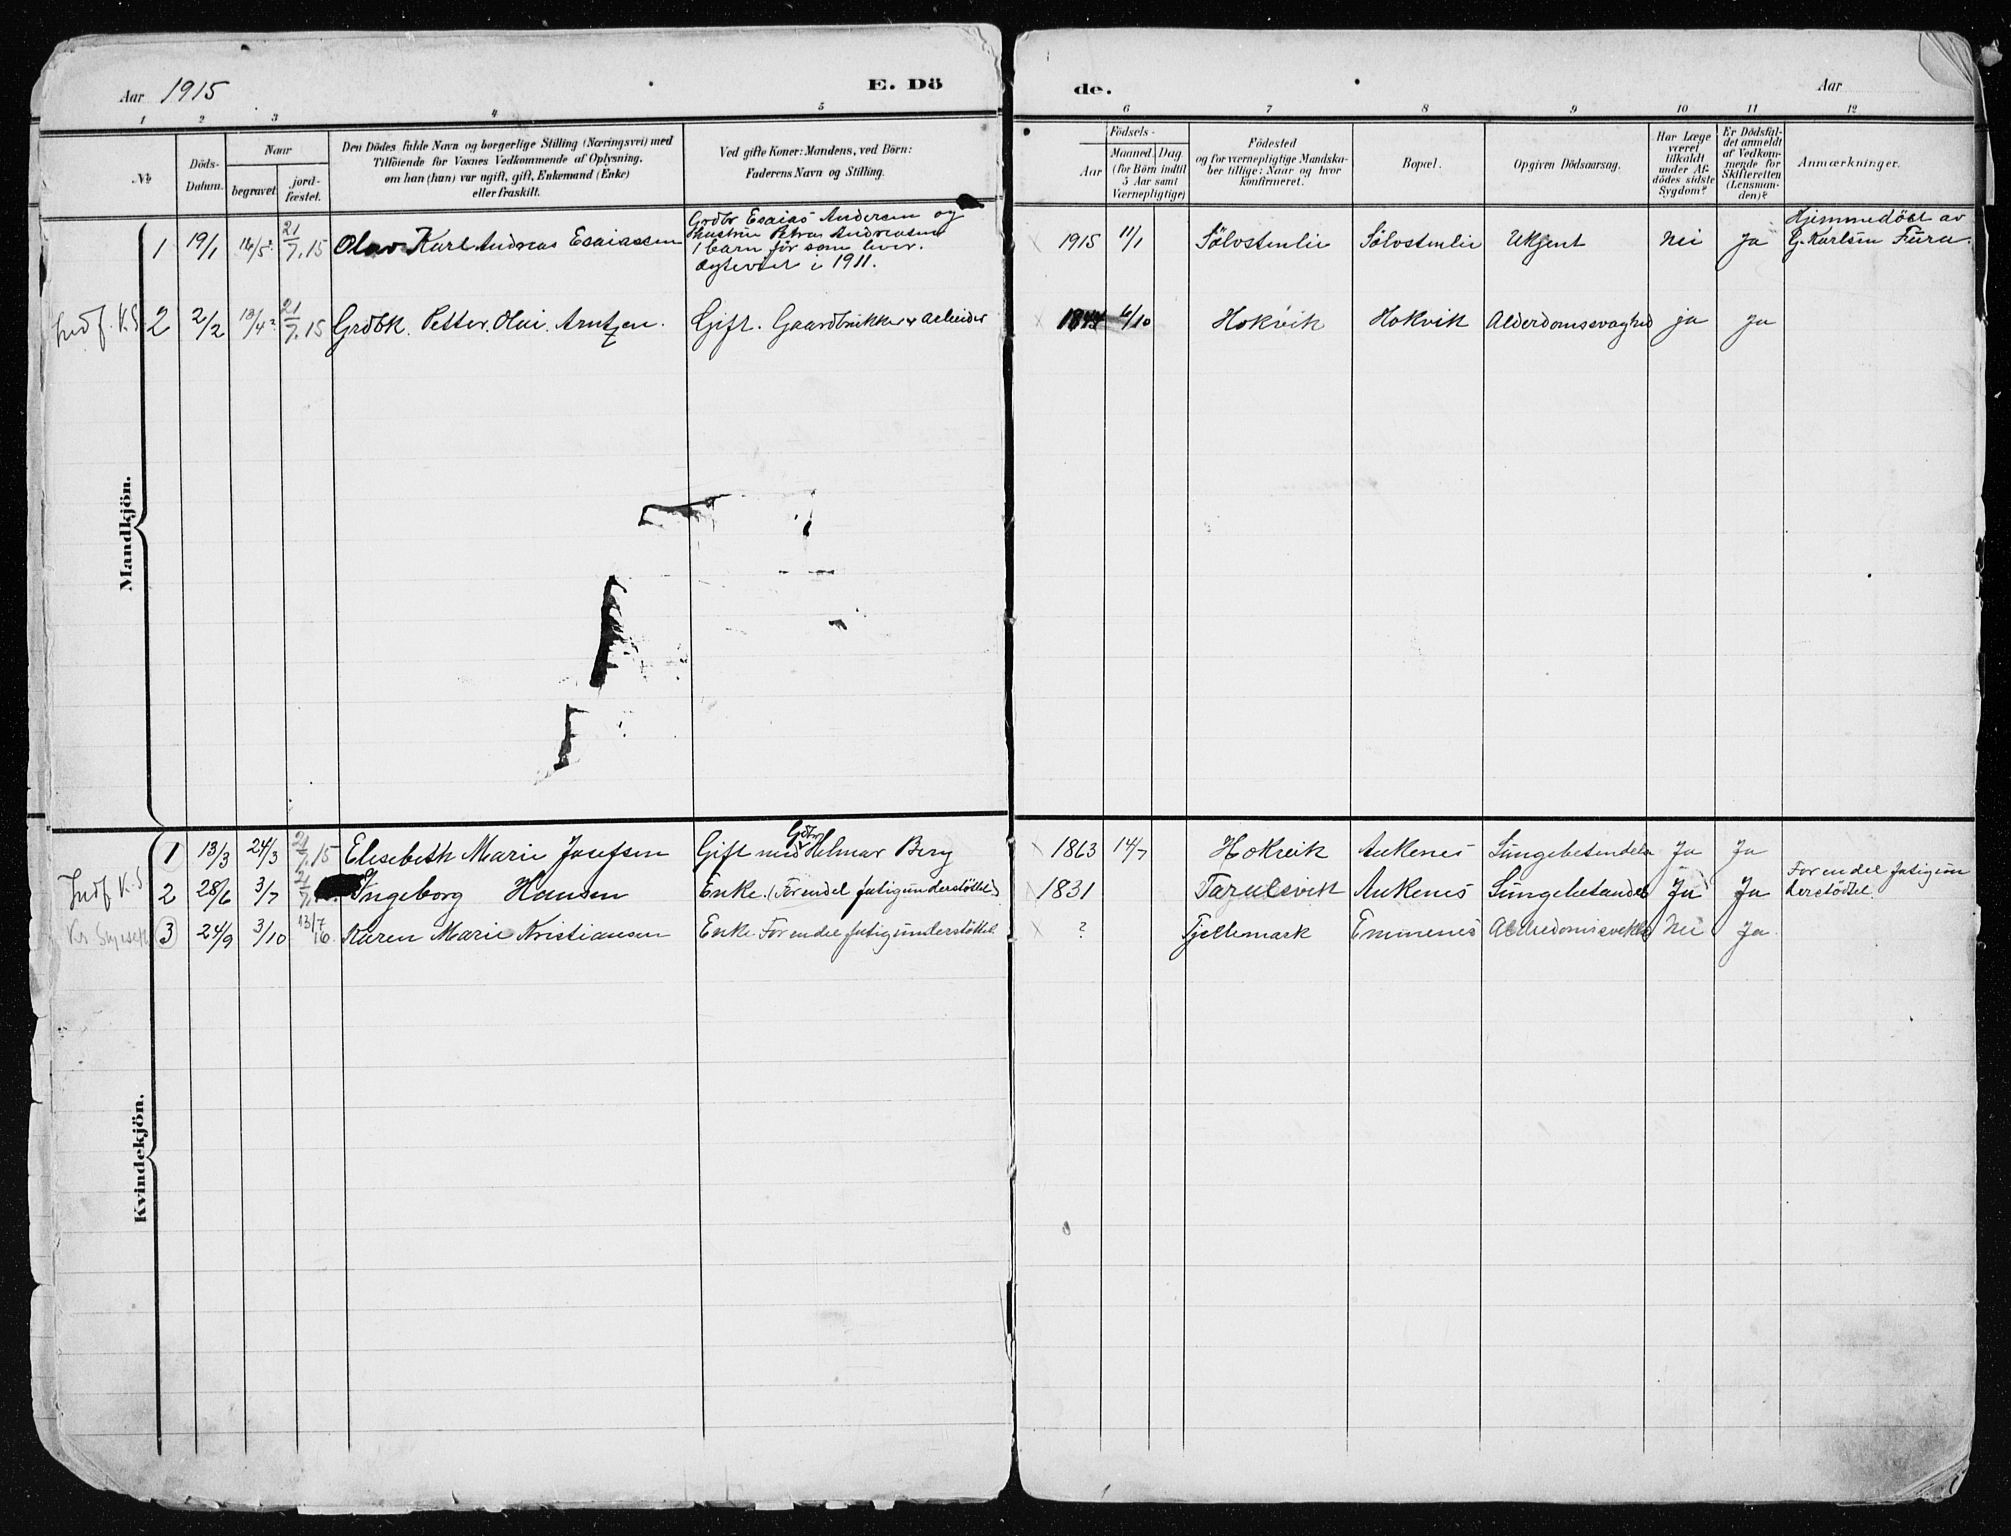 Aar 1915 E. Dö de. Aar
1 2 3 4 5 6 7 8 9 10 11 12
№
Döds-
Datum.
Naar
begravet.
jord-
fæstet.
Den Dödes fulde Navn og borgerlige Stilling (Næringsvei) med
Tilföiende for Voxnes Vedkommende af Oplysning,
om han (hun) var ugift, gift, Enkemand (Enke)
eller fraskilt.
Ved gifte Koner: Mandens, ved Börn:
Faderens Navn og Stilling.
Födsels-
Aar
Maaned. Dag
(for Börn indtil
5 Aar samt
Værnepligtige)
Födested
og for værnepligtige Mandska-
ber tillige: Naar og hvor
konfirmeret.
Bopæl.
Opgiven Dödsaarsag.
Har Læge
været
tilkaldt
under Af-
dödes sidste
Sygdom?
Er Dödsfal-
det anmeldt
af Vedkom-
mende for
Skifteretten
(Lensman-
den)?
Anmærkninger.
Mandkjön.
1 19/1 16/5 21/7.15 Olav Karl Andreas Esaiassen
Grdbr Esaias Andersen og
hustru Petra Andreasen
1 barn för som lever.
Ægteviet i 1911.
1915 11/1 Sölvstenlie Sölvstenlie Ukjent Nei Ja
Hjemmedöbt av
G. Karlsen Furu.
Indf. K.S 2 2/2 13/4 21/7.15 Grdbk. Petter Olai Arntzen. Gift. Gaardbrukker & Arbeider 1844 6/10 Hokvik Hokvik Alderdomssvaghed ja ja
Kvindekjön.
1 13/3 24/3 21/7.15 Elisebeth Marie Josefsen Gift med Gdbr Helmar Berg 1863 14/7 Hokvik Ankenes Lungebetendelse Ja Ja
Indf K.S 2 28/6 3/7 Ingeborg Hansen Enke. (For endel fatigunderstöttet) 1831 Taraldsvik Ankenes Lungebetendelse Ja Ja
For endel fatigun
derstöttet.
3 24/9 3/10 13/7 16. Karen Marie Kristiansen Enke. For endel fatigunderstöttet ? Fjellemark Emmenes Alderdomssvekke Nei Ja.